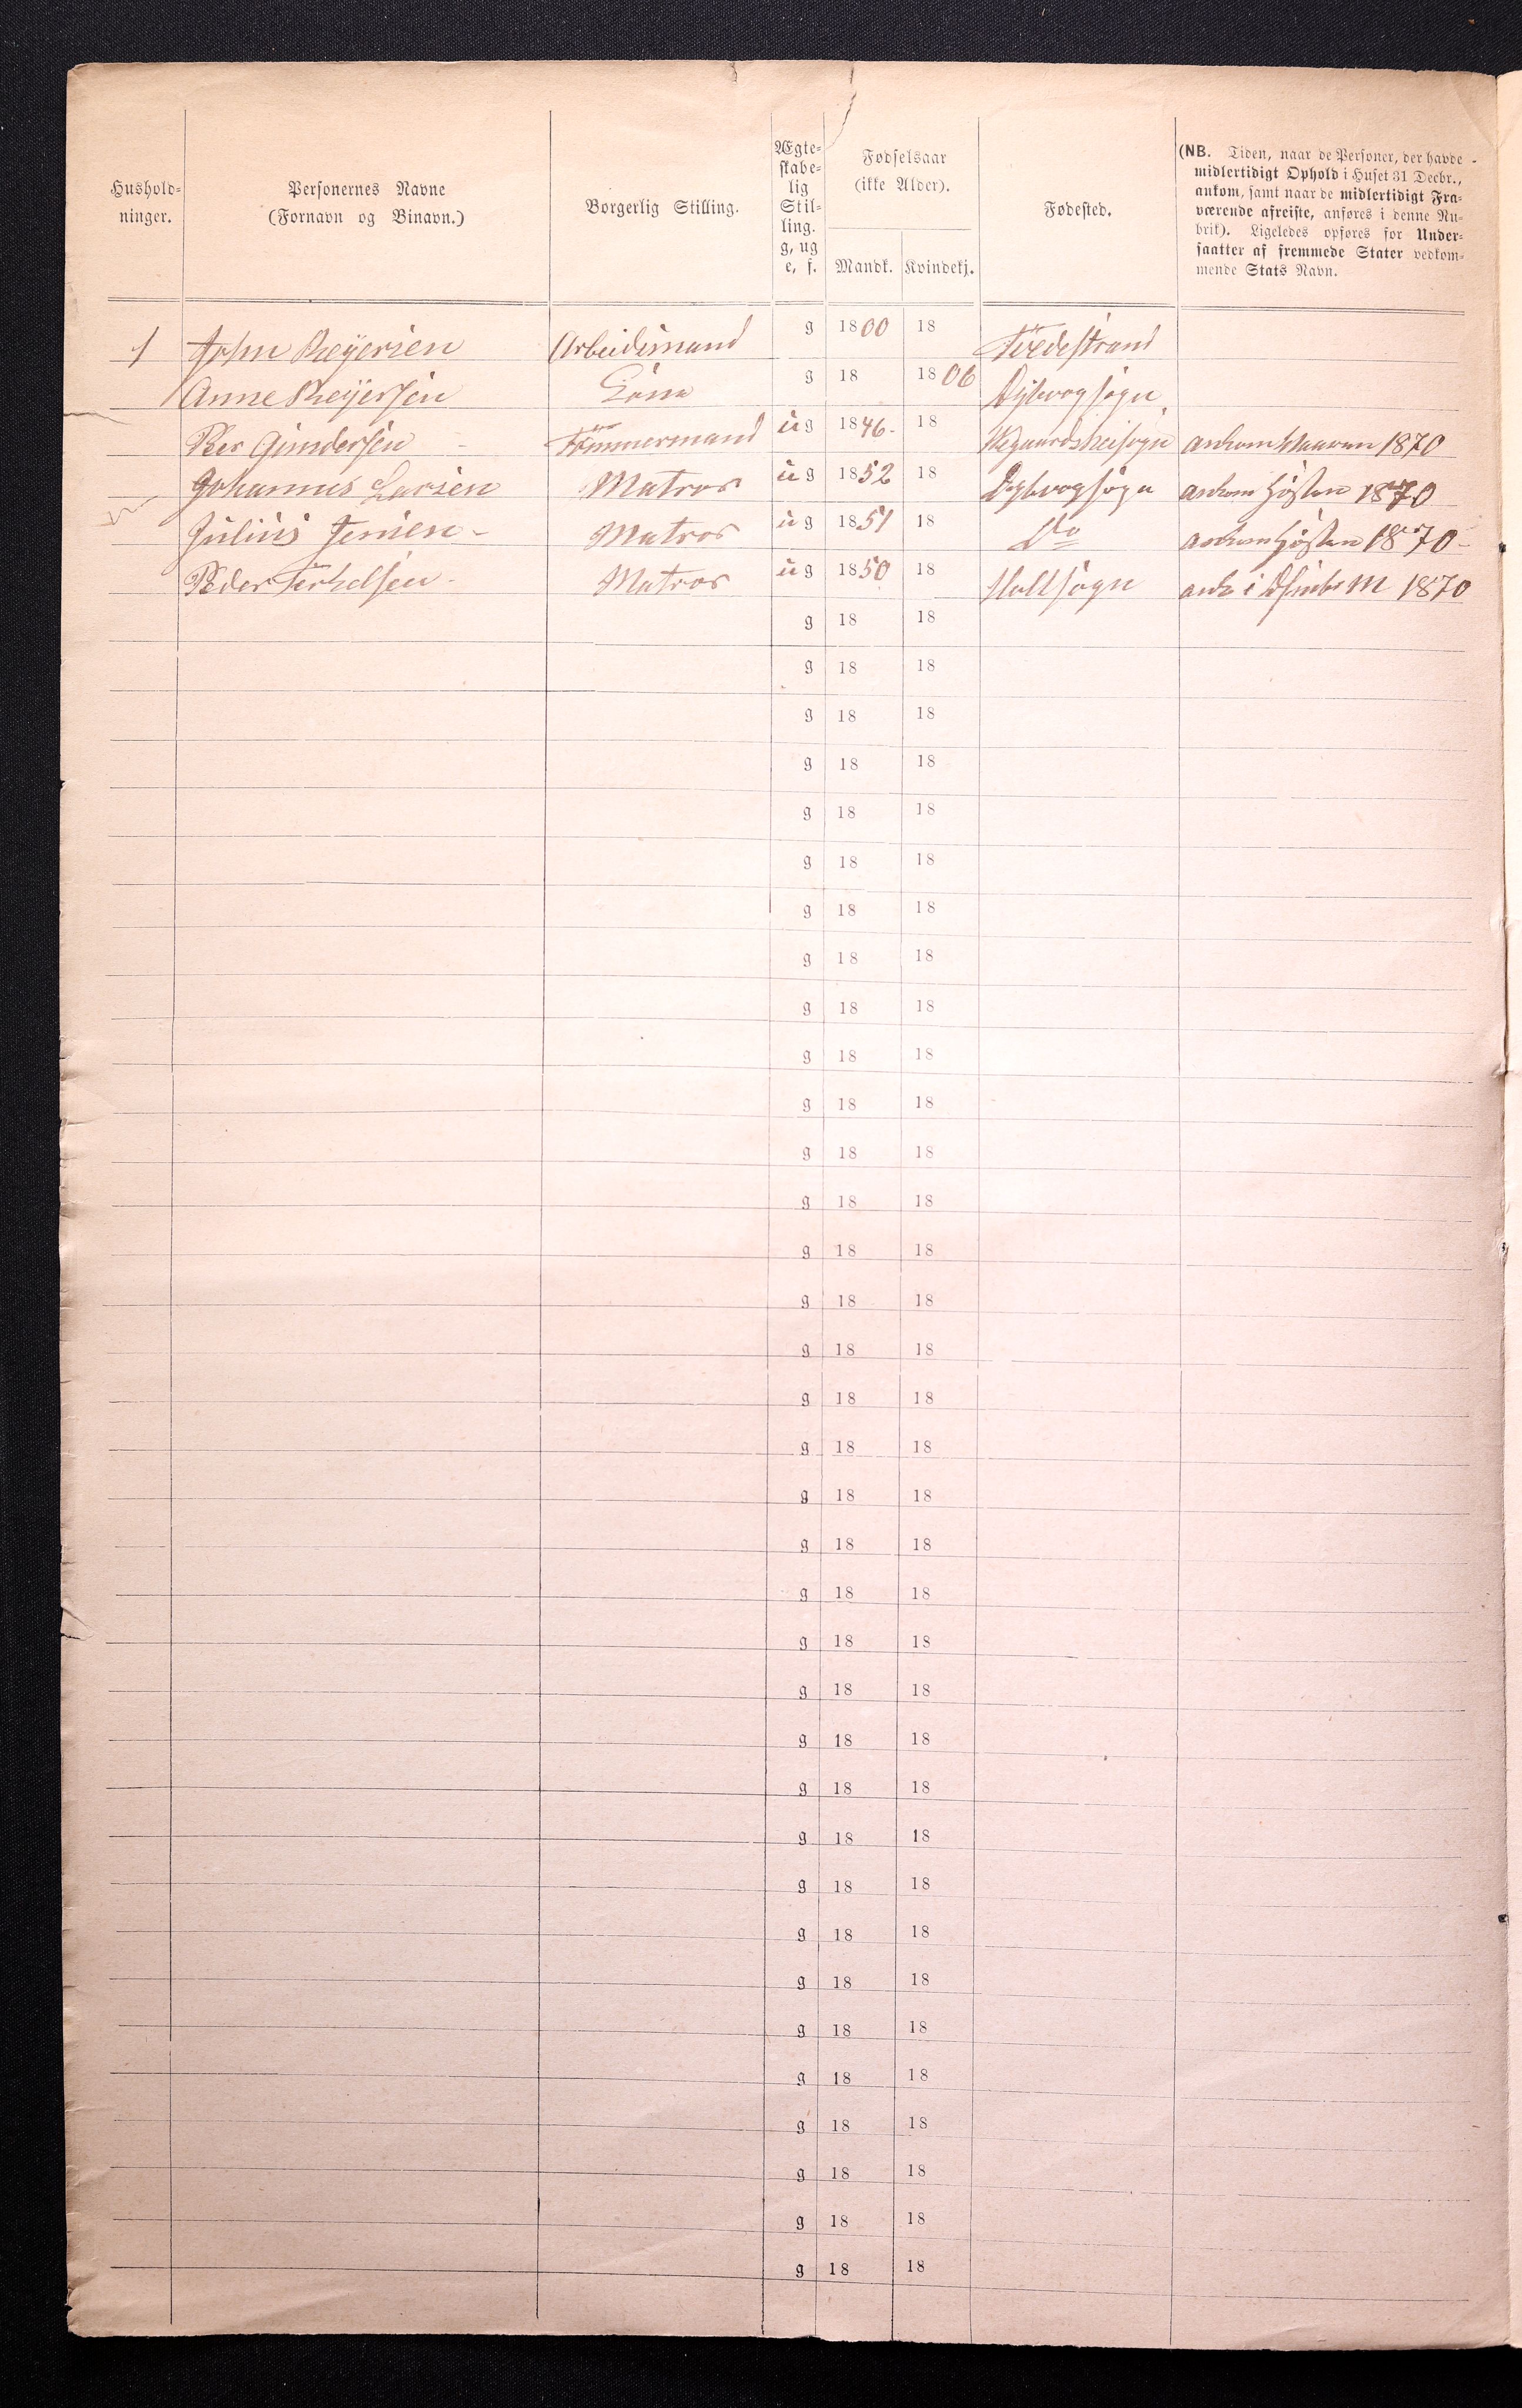 Hushold-
ninger.
Personernes Navne
(Fornavn og Binavn.)
Borgerlig Stilling.
Ægte-
skabe-
lig
Stil-
ling.
g, ug
e, f.
Fødselsaar
(ikke Alder).
Mandk. Kvindekj.
Fødested.
(NB. Tiden, naar de Personer, der havde
midlertidigt Ophold i Huset 31 Decbr.,
ankom, samt naar de midlertidigt Fra-
værende afreiste, anføres i denne Ru-
brik). Ligeledes opføres for Under-
saatter af fremmede Stater vedkom-
mende Stats Navn.
1 John Reÿersen Arbeidsmand g 1800 18 Tvedestrand
Anne Reÿersen Kone g 18 1806 Dybvog sogn
Peer Gundersen Tömmermand ug 1846 18 Wegaardsheisogn ankom Waaren 1870
Johannes Larsen Matros ug 1852 18 Dybvog sogn ankom Hösten 1870
Julius Jensen Matros ug 1851 18 Do ankom Hösten 1870
Peder Terkelsen Matros ug 1850 18 Holt sogn ank i M 1870
g 18 18
g 18 18
g 18 18
g 18 18
g 18 18
g 18 18
g 18 18
g 18 18
g 18 18
g 18 18
g 18 18
g 18 18
g 18 18
g 18 18
g 18 18
g 18 18
g 18 18
g 18 18
g 18 18
g 18 18
g 18 18
g 18 18
g 18 18
g 18 18
g 18 18
g 18 18
g 18 18
g 18 18
g 18 18
g 18 18
g 18 18
g 18 18
g 18 18
g 18 18
g 18 18